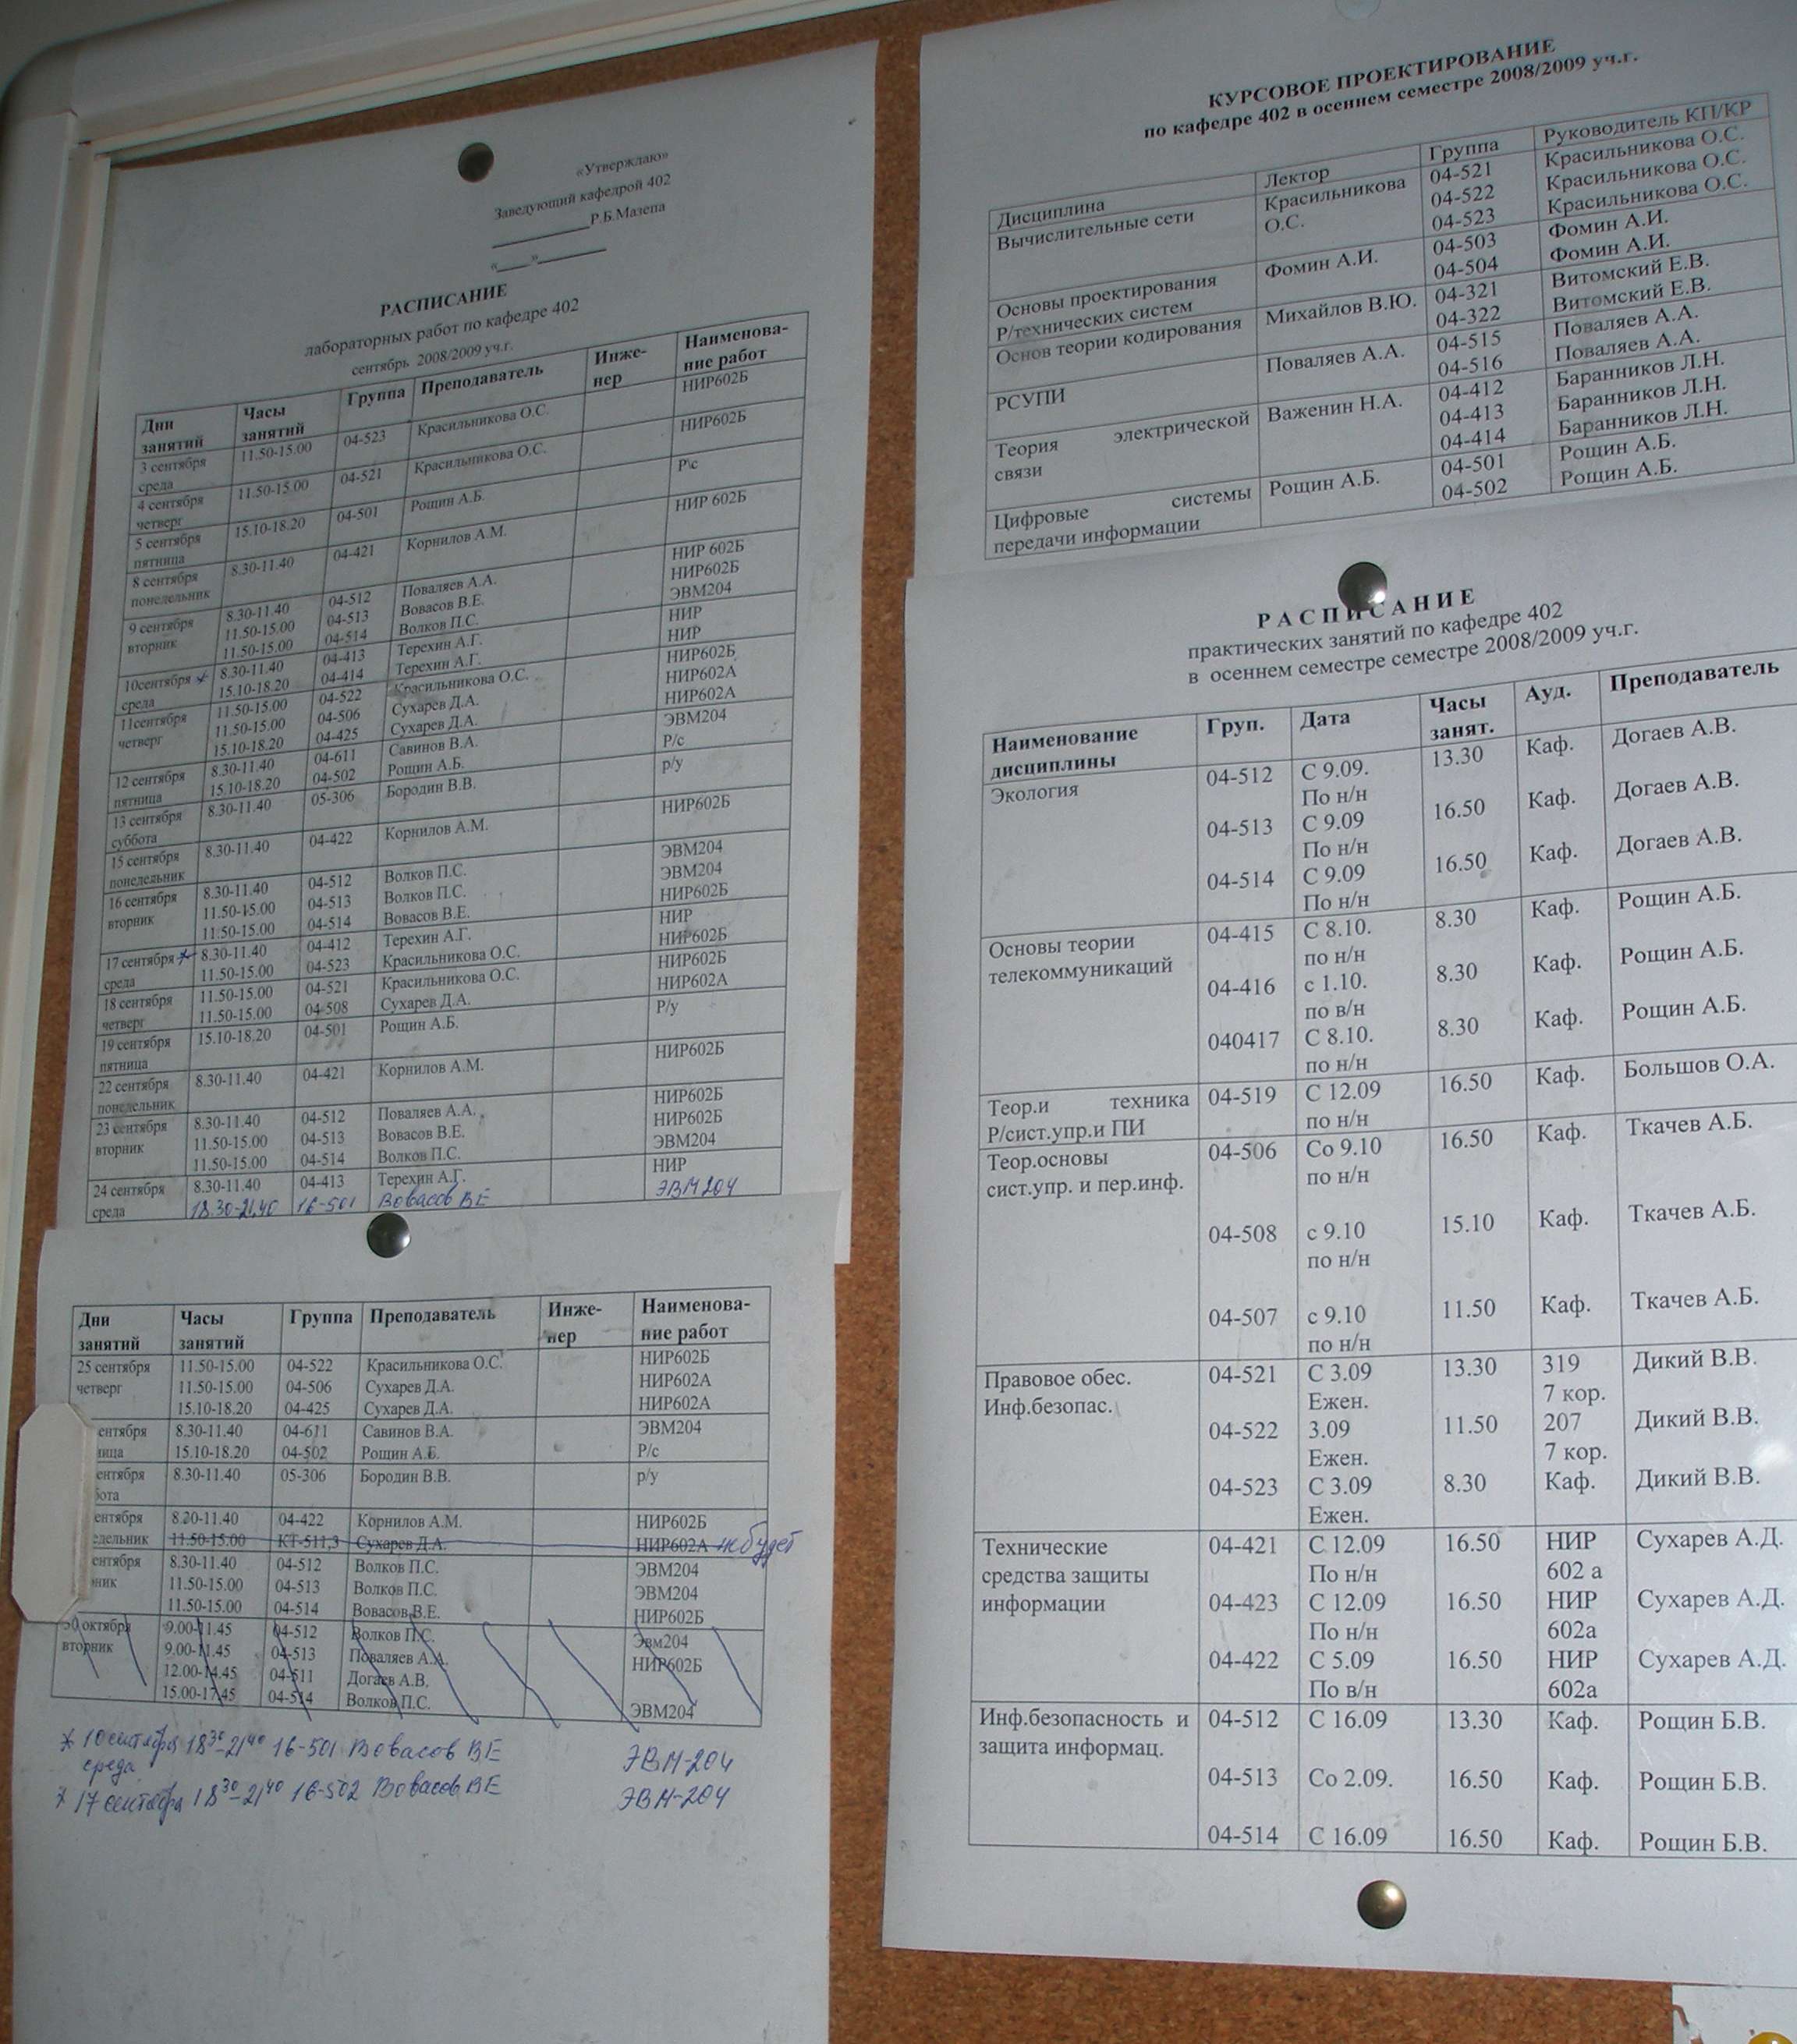 «Утверждаю»
Заведующий кафедрой 402
____________Р.Б.Мазепа
«____»_________
РАСПИСАНИЕ
лабораторных работ по кафедре 402
сентябрь 2008/2009 уч.г.
Дни занятий Часы занятий Группа Преподаватель Инже-нер Наименова-ние работ
3 сентября среда 11.50-15.00 04-523 Красильникова О.С. НИР602Б
4 сентября четверг 11.50-15.00 04-521 Красильникова О.С. НИР602Б
5 сентября пятница 15.10-18.20 04-501 Рощин А.Б. Р\с
8 сентября понедельник 8.30-11.40 04-421 Корнилов А.М. НИР 602Б
9 сентября 8.30-11.40 04-512 Поваляев А.А. НИР 602Б
вторник 11.50-15.00 04-513 Вовасов В.Е. НИР602Б
11.50-15.00 04-514 Волков П.С. ЭВМ204
10сентября * 8.30-11.40 04-413 Терехин А.Г. НИР
среда 15.10-18.20 04-414 Терехин А.Г. НИР
11сентября 11.50-15.00 04-522 Красильникова О.С. НИР602Б
четверг 11.50-15.00 04-506 Сухарев Д.А. НИР602А
15.10-18.20 04-425 Сухарев Д.А. НИР602А
12 сентября 8.30-11.40 04-611 Савинов В.А. ЭВМ204
пятница 15.10-18.20 04-502 Рощин А.Б. Р/с
13 сентября суббота 8.30-11.40 05-306 Бородин В.В. р/у
15 сентября понедельник 8.30-11.40 04-422 Корнилов А.М. НИР602Б
16 сентября 8.30-11.40 04-512 Волков П.С. ЭВМ204
вторник 11.50-15.00 04-513 Волков П.С. ЭВМ204
11.50-15.00 04-514 Вовасов В.Е. НИР602Б
17 сентября * 8.30-11.40 04-412 Терехин А.Г. НИР
среда 11.50-15.00 04-523 Красильникова О.С. НИР602Б
18 сентября 11.50-15.00 04-521 Красильникова О.С. НИР602Б
четверг 11.50-15.00 04-508 Сухарев Д.А. НИР602А
19 сентября пятница 15.10-18.20 04-501 Рощин А.Б. Р/у
22 сентября понедельник 8.30-11.40 04-421 Корнилов А.М. НИР602Б
23 сентября 8.30-11.40 04-512 Поваляев А.А. НИР602Б
вторник 11.50-15.00 04-513 Вовасов В.Е. НИР602Б
11.50-15.00 04-514 Волков П.С. ЭВМ204
24 сентября 8.30-11.40 04-413 Терехин А.Г. НИР
среда 18.30-21.40 16-501 Вовасов ВЕ ЭВМ204
Дни занятий Часы занятий Группа Преподаватель Инже-нер Наименова-ние работ
25 сентября 11.50-15.00 04-522 Красильникова О.С. НИР602Б
четверг 11.50-15.00 04-506 Сухарев Д.А. НИР602А
15.10-18.20 04-425 Сухарев Д.А. НИР602А
ентября 8.30-11.40 04-611 Савинов В.А. ЭВМ204
ница 15.10-18.20 04-502 Рощин А.Б. Р/с
ентября 8.30-11.40 05-306 Бородин В.В. р/у
бота
ентября 8.20-11.40 04-422 Корнилов А.М. НИР602Б
едельник 11.50-15.00 КТ-511,3 Сухарев Д.А. НИР602А не будет
ентября 8.30-11.40 04-512 Волков П.С. ЭВМ204
ник 11.50-15.00 04-513 Волков П.С. ЭВМ204
11.50-15.00 04-514 Вовасов В.Е. НИР602Б
30 октября 9.00-11.45 04-512 Волков П.С. Эвм204
вторник 9.00-11.45 04-513 Поваляев А.А. НИР602Б
12.00-14.45 04-511 Догаев А.В.
15.00-17.45 04-514 Волков П.С. ЭВМ204
* 10 сентября 18³⁰-21⁴⁰ 16-501 Вовасов ВЕ ЭВМ-204
среда
* 17 сентября 18³⁰-21⁴⁰ 16-502 Вовасов ВЕ ЭВМ-204
КУРСОВОЕ ПРОЕКТИРОВАНИЕ
по кафедре 402 в осеннем семестре 2008/2009 уч.г.
Дисциплина Лектор Группа Руководитель КП/КР
Вычислительные сети Красильникова 04-521 Красильникова О.С.
О.С. 04-522 Красильникова О.С.
04-523 Красильникова О.С.
Основы проектирования Фомин А.И. 04-503 Фомин А.И.
Р/технических систем 04-504 Фомин А.И.
Основ теории кодирования Михайлов В.Ю. 04-321 Витомский Е.В.
04-322 Витомский Е.В.
РСУПИ Поваляев А.А. 04-515 Поваляев А.А.
04-516 Поваляев А.А.
Теория электрической Важенин Н.А. 04-412 Баранников Л.Н.
связи 04-413 Баранников Л.Н.
04-414 Баранников Л.Н.
Цифровые системы Рощин А.Б. 04-501 Рощин А.Б.
передачи информации 04-502 Рощин А.Б.
РАСПИСАНИЕ
практических занятий по кафедре 402
в осеннем семестре семестре 2008/2009 уч.г.
Наименование дисциплины Груп. Дата Часы занят. Ауд. Преподаватель
Экология 04-512 С 9.09. 13.30 Каф. Догаев А.В.
По н/н
04-513 С 9.09 16.50 Каф. Догаев А.В.
По н/н
04-514 С 9.09 16.50 Каф. Догаев А.В.
По н/н
Основы теории 04-415 С 8.10. 8.30 Каф. Рощин А.Б.
телекоммуникаций по н/н
04-416 с 1.10. 8.30 Каф. Рощин А.Б.
по в/н
040417 С 8.10. 8.30 Каф. Рощин А.Б.
по н/н
Теор.и техника 04-519 С 12.09 16.50 Каф. Большов О.А.
Р/сист.упр.и ПИ по н/н
Теор.основы 04-506 Со 9.10 16.50 Каф. Ткачев А.Б.
сист.упр. и пер.инф. по н/н
04-508 с 9.10 15.10 Каф. Ткачев А.Б.
по н/н
04-507 с 9.10 11.50 Каф. Ткачев А.Б.
по н/н
Правовое обес. 04-521 С 3.09 13.30 319 Дикий В.В.
Инф.безопас. Ежен. 7 кор.
04-522 3.09 11.50 207 Дикий В.В.
Ежен. 7 кор.
04-523 С 3.09 8.30 Каф. Дикий В.В.
Ежен.
Технические 04-421 С 12.09 16.50 НИР Сухарев А.Д.
средства защиты По н/н 602 а
информации 04-423 С 12.09 16.50 НИР Сухарев А.Д.
По н/н 602а
04-422 С 5.09 16.50 НИР Сухарев А.Д.
По в/н 602а
Инф.безопасность и 04-512 С 16.09 13.30 Каф. Рощин Б.В.
защита информац.
04-513 Со 2.09. 16.50 Каф. Рощин Б.В.
04-514 С 16.09 16.50 Каф. Рощин Б.В.